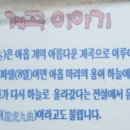 계곡 이야기
은 아홉 개의 아름다운 계곡으로 이루어
파일(8일)이면 아홉 마리의 용이 하늘에
가 다시 하늘로 올라갔다는 전설에서 유
(龍虎九曲)이라고도 불립니다.